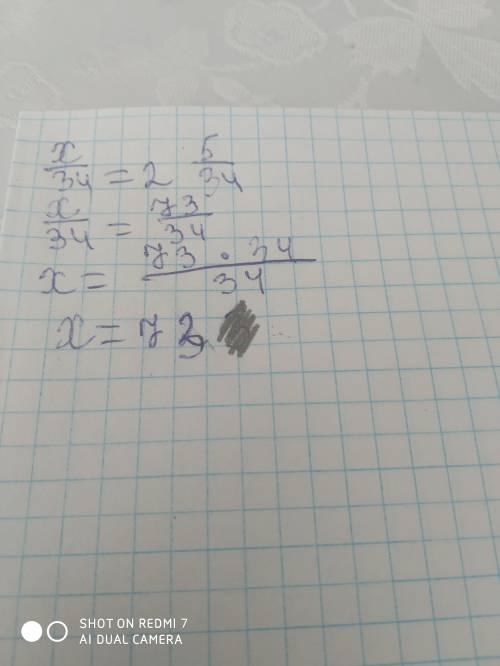 x/34 = 2 5/34
x/34 = 73/34
x = 73 · 34/34
x = 73
SHOT ON REDMI 7
AI DUAL CAMERA